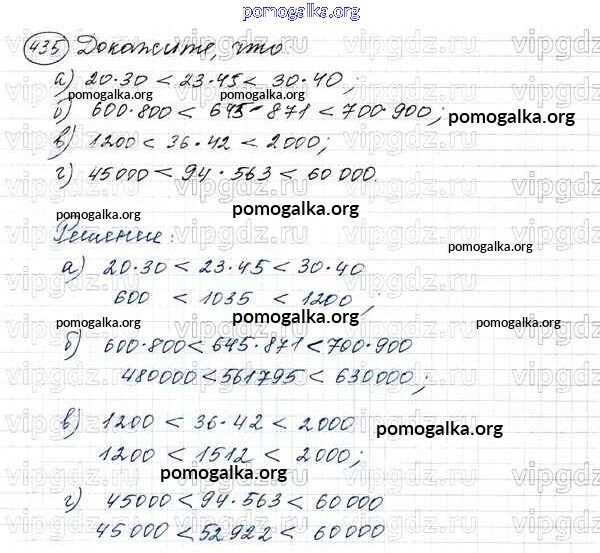 pomogalka.org
435 Докажите, что:
а) 20·30 < 23·45 < 30·40;
pomogalka.org pomogalka.org
б) 600·800 < 645·871 < 700·900; pomogalka.org
в) 1200 < 36·42 < 2000;
pomogalka.org
г) 45000 < 94·563 < 60000.
pomogalka.org pomogalka.org
Решение: pomogalka.org
а) 20·30 < 23·45 < 30·40
600 < 1035 < 1200;
pomogalka.org pomogalka.org pomogalka.org
б) 600·800 < 645·871 < 700·900
480000 < 561795 < 630000;
в) 1200 < 36·42 < 2000
pomogalka.org
1200 < 1512 < 2000;
pomogalka.org
г) 45000 < 94·563 < 60000
45000 < 52922 < 60000